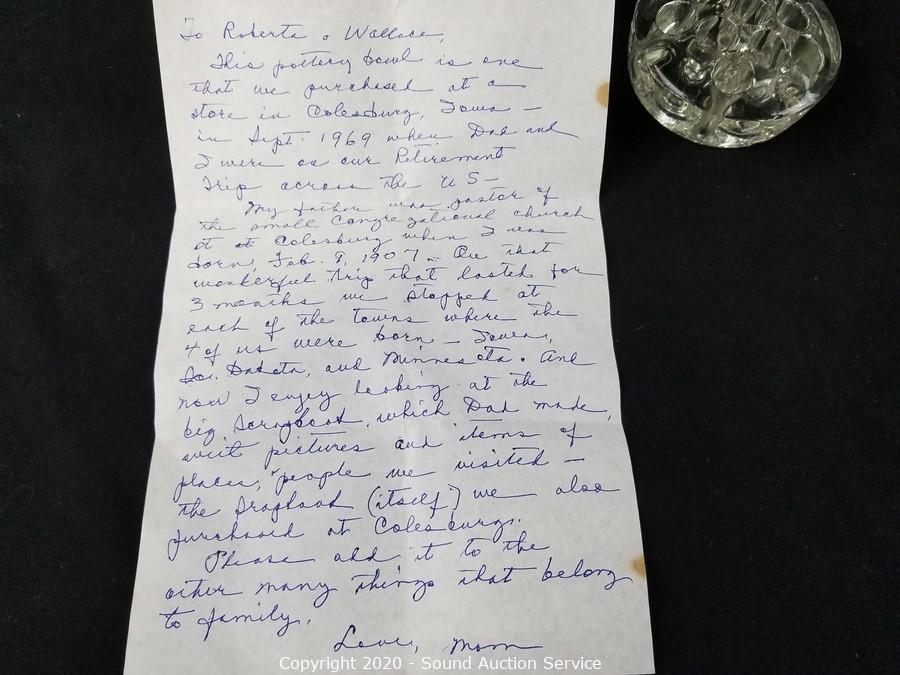 To Roberta & Wallace,
This pottery bowl is one
that we purchased at a
store in Colesburg, Iowa –
in Sept. 1969 when Dad and
I were on our Retirement
Trip across the U S –
My father was pastor of
the small Congregational church
at Colesburg when I was
born, Feb. 9, 1907. On that
wonderful trip that lasted for
3 months we stopped at
each of the towns where the
4 of us were born – Iowa,
So. Dakota, and Minnesota. And
now I enjoy looking at the
big Scrapbook, which Dad made,
with pictures and items of
places, people we visited –
the Srapbook (itself) we also
purchased at Colesburg.
Please add it to the
other many things that belong
to family.
Love, Mom
Copyright 2020 - Sound Auction Service